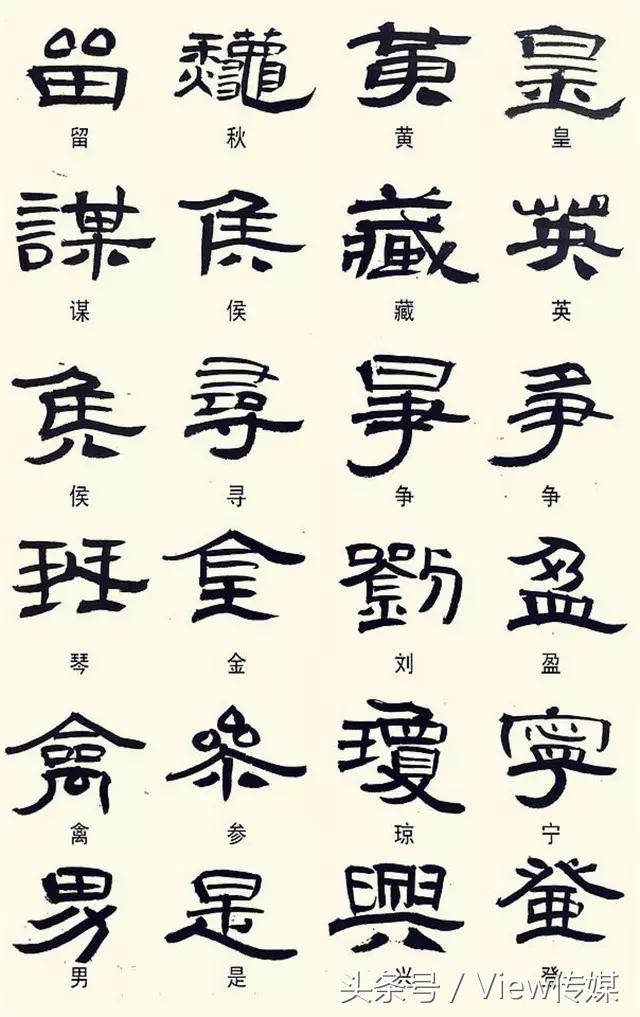 留 龝 黄 皇
留 秋 黄 皇
謀 侯 藏 英
谋 侯 藏 英
侯 尋 争 争
侯 寻 争 争
金 劉 盈
琴 金 刘 盈
禽 参 瓊 寧
禽 参 琼 宁
男 是 興
男 是 兴
头条号 / View传媒